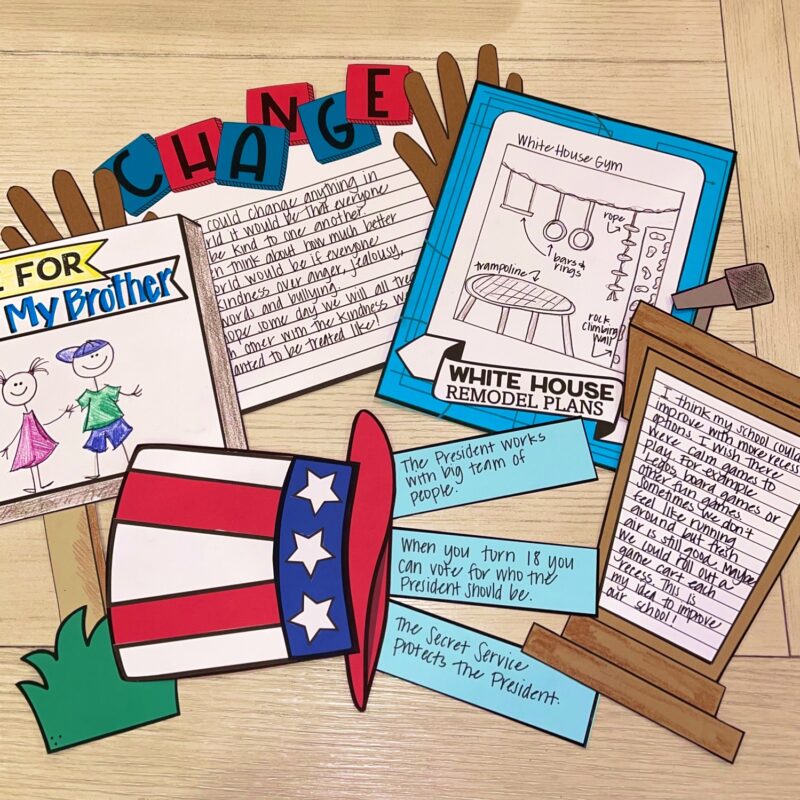 CHANGE
could change anything in
it would be that everyone
be kind to one another.
think about how much better
world would be if everyone
kindness over anger, jealousy,
words and bullying.
some day we will all treat
other with the kindness
wanted to be treated like!
FOR
My Brother
White House Gym
rope
bars &
rings
trampoline
rock
climbing
wall
WHITE HOUSE
REMODEL PLANS
The President works
with big team of
people.
When you turn 18 you
can vote for who the
President should be.
The Secret Service
Protects the President.
I think my school could
improve with more recess
options. I wish there
were calm games to
play. For example
Legos, board games or
other fun games
sometimes we don't
feel like running
around but fresh
air is still good. Maybe
we could roll out a
game cart each
recess. This is
my idea to improve
our school!